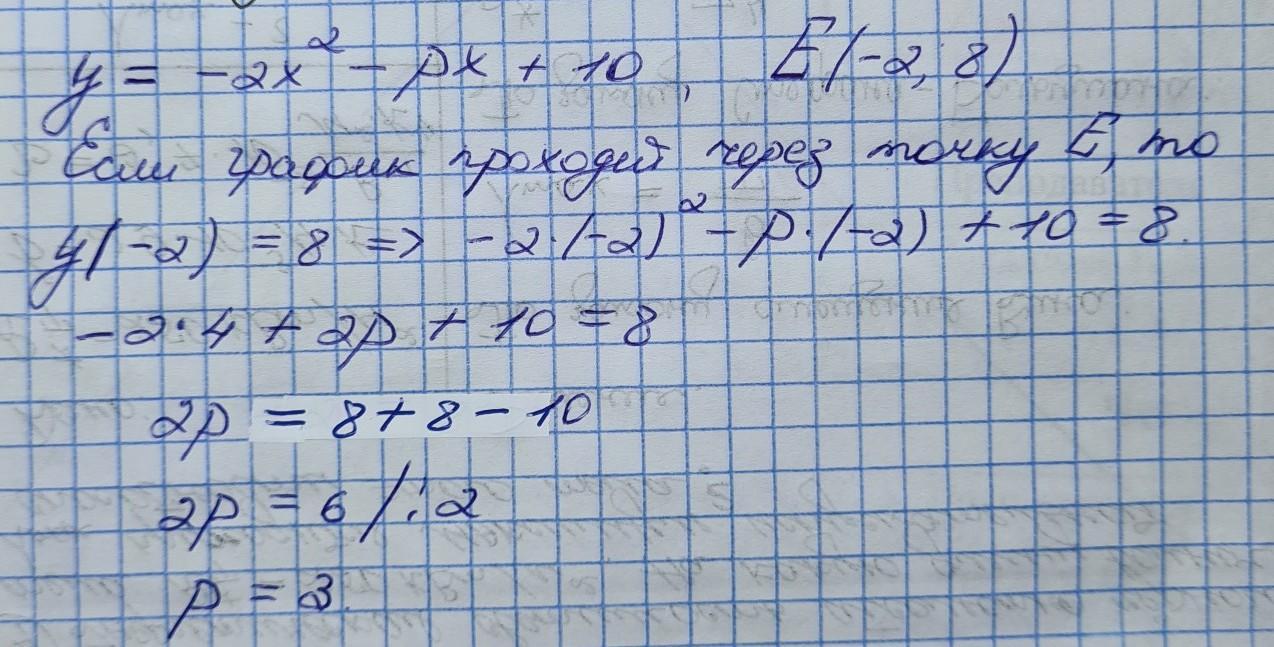 y = -2x² - px + 10, E(-2; 8)
Если график проходит через точку E, то
y(-2) = 8 => -2·(-2)² - p·(-2) + 10 = 8.
-2·4 + 2p + 10 = 8
2p = 8 + 8 - 10
2p = 6 /:2
p = 3.